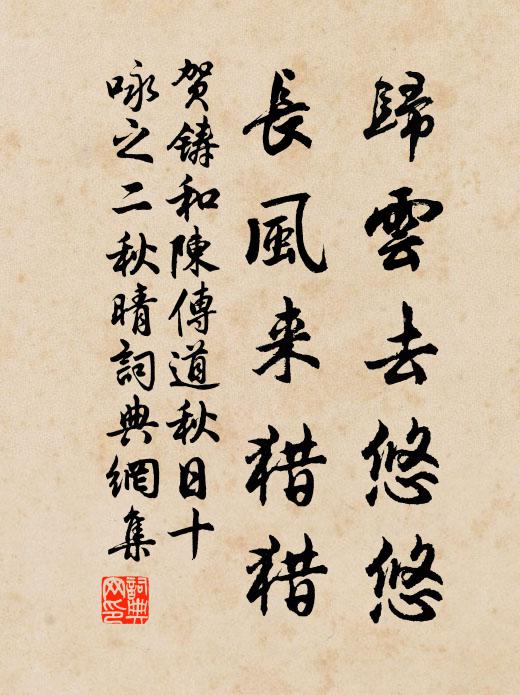 歸雲去悠悠
長風来猎猎
賀鑄和陳傳道秋日十
咏之二秋晴詞典網集
詞典网印